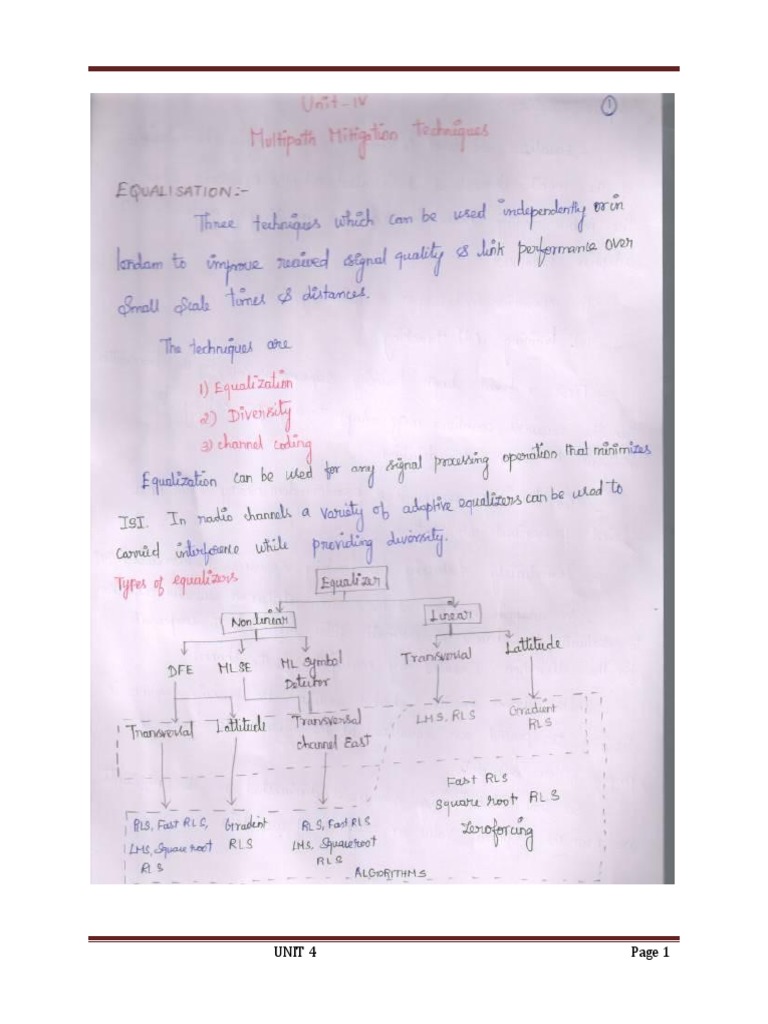 Unit-IV
①
Multipath Mitigation Techniques
EQUALISATION:-
Three techniques which can be used independently or in
tandam to improve recived signal quality & link performance over
Small Scale times & distances.
The techniques are
1) Equalization
2) Diversity
3) channel coding
Equalization can be used for any signal processing operation that minimizes
ISI. In radio channels a variety of adaptive equalizers can be used to
carried interference while providing diversity.
Types of equalizers
Equalizer
Nonlinear
Linear
DFE
MLSE
ML Symbol
Detector
Transversal
Lattitude
Transversal
Lattitude
Transversal
channel East
LMS, RLS
Gradient
RLS
Fast RLS
Square root RLS
Zeroforcing
RLS, Fast RLS,
LMS, Square root
RLS
Gradent
RLS
RLS, Fast RLS
LMS, Squareroot
RLS
ALGORITHMS
UNIT 4
Page 1